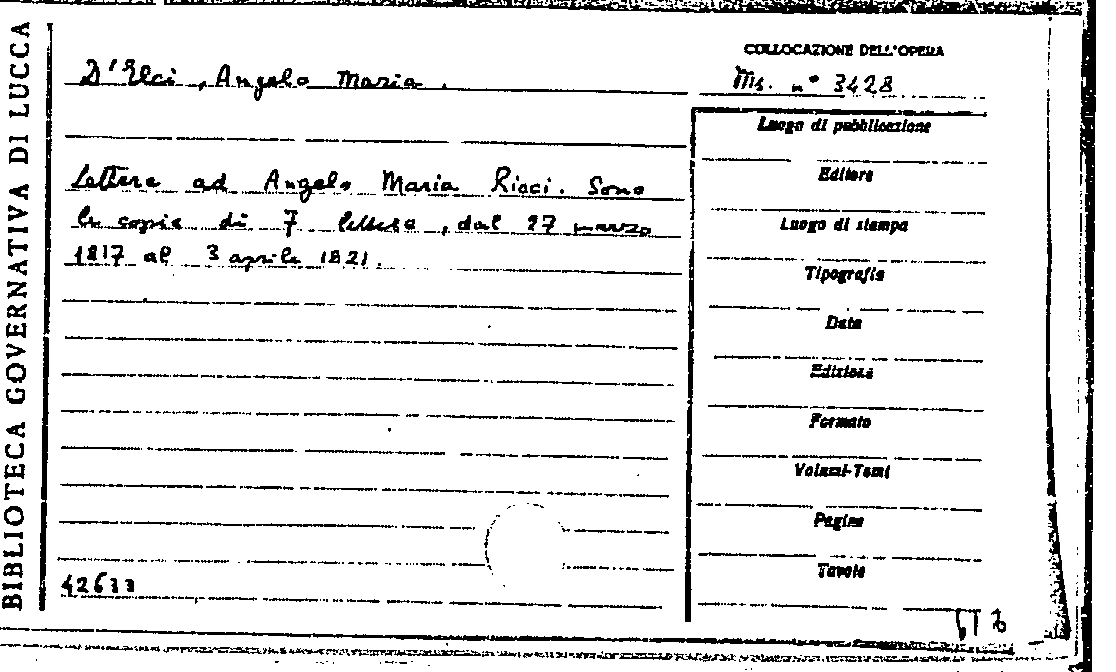 BIBLIOTECA GOVERNATIVA DI LUCCA
D'Elci, Angelo Maria.
COLLOCAZIONE DELL'OPERA
Ms. n° 3428
Lettere ad Angelo Maria Ricci. Sono
le copie di 7 lettere, dal 27 marzo
1817 al 3 aprile 1821.
Luogo di pubblicazione
Editore
Luogo di stampa
Tipografia
Data
Edizione
Formato
Volumi-Tomi
Pagine
Tavole
42633